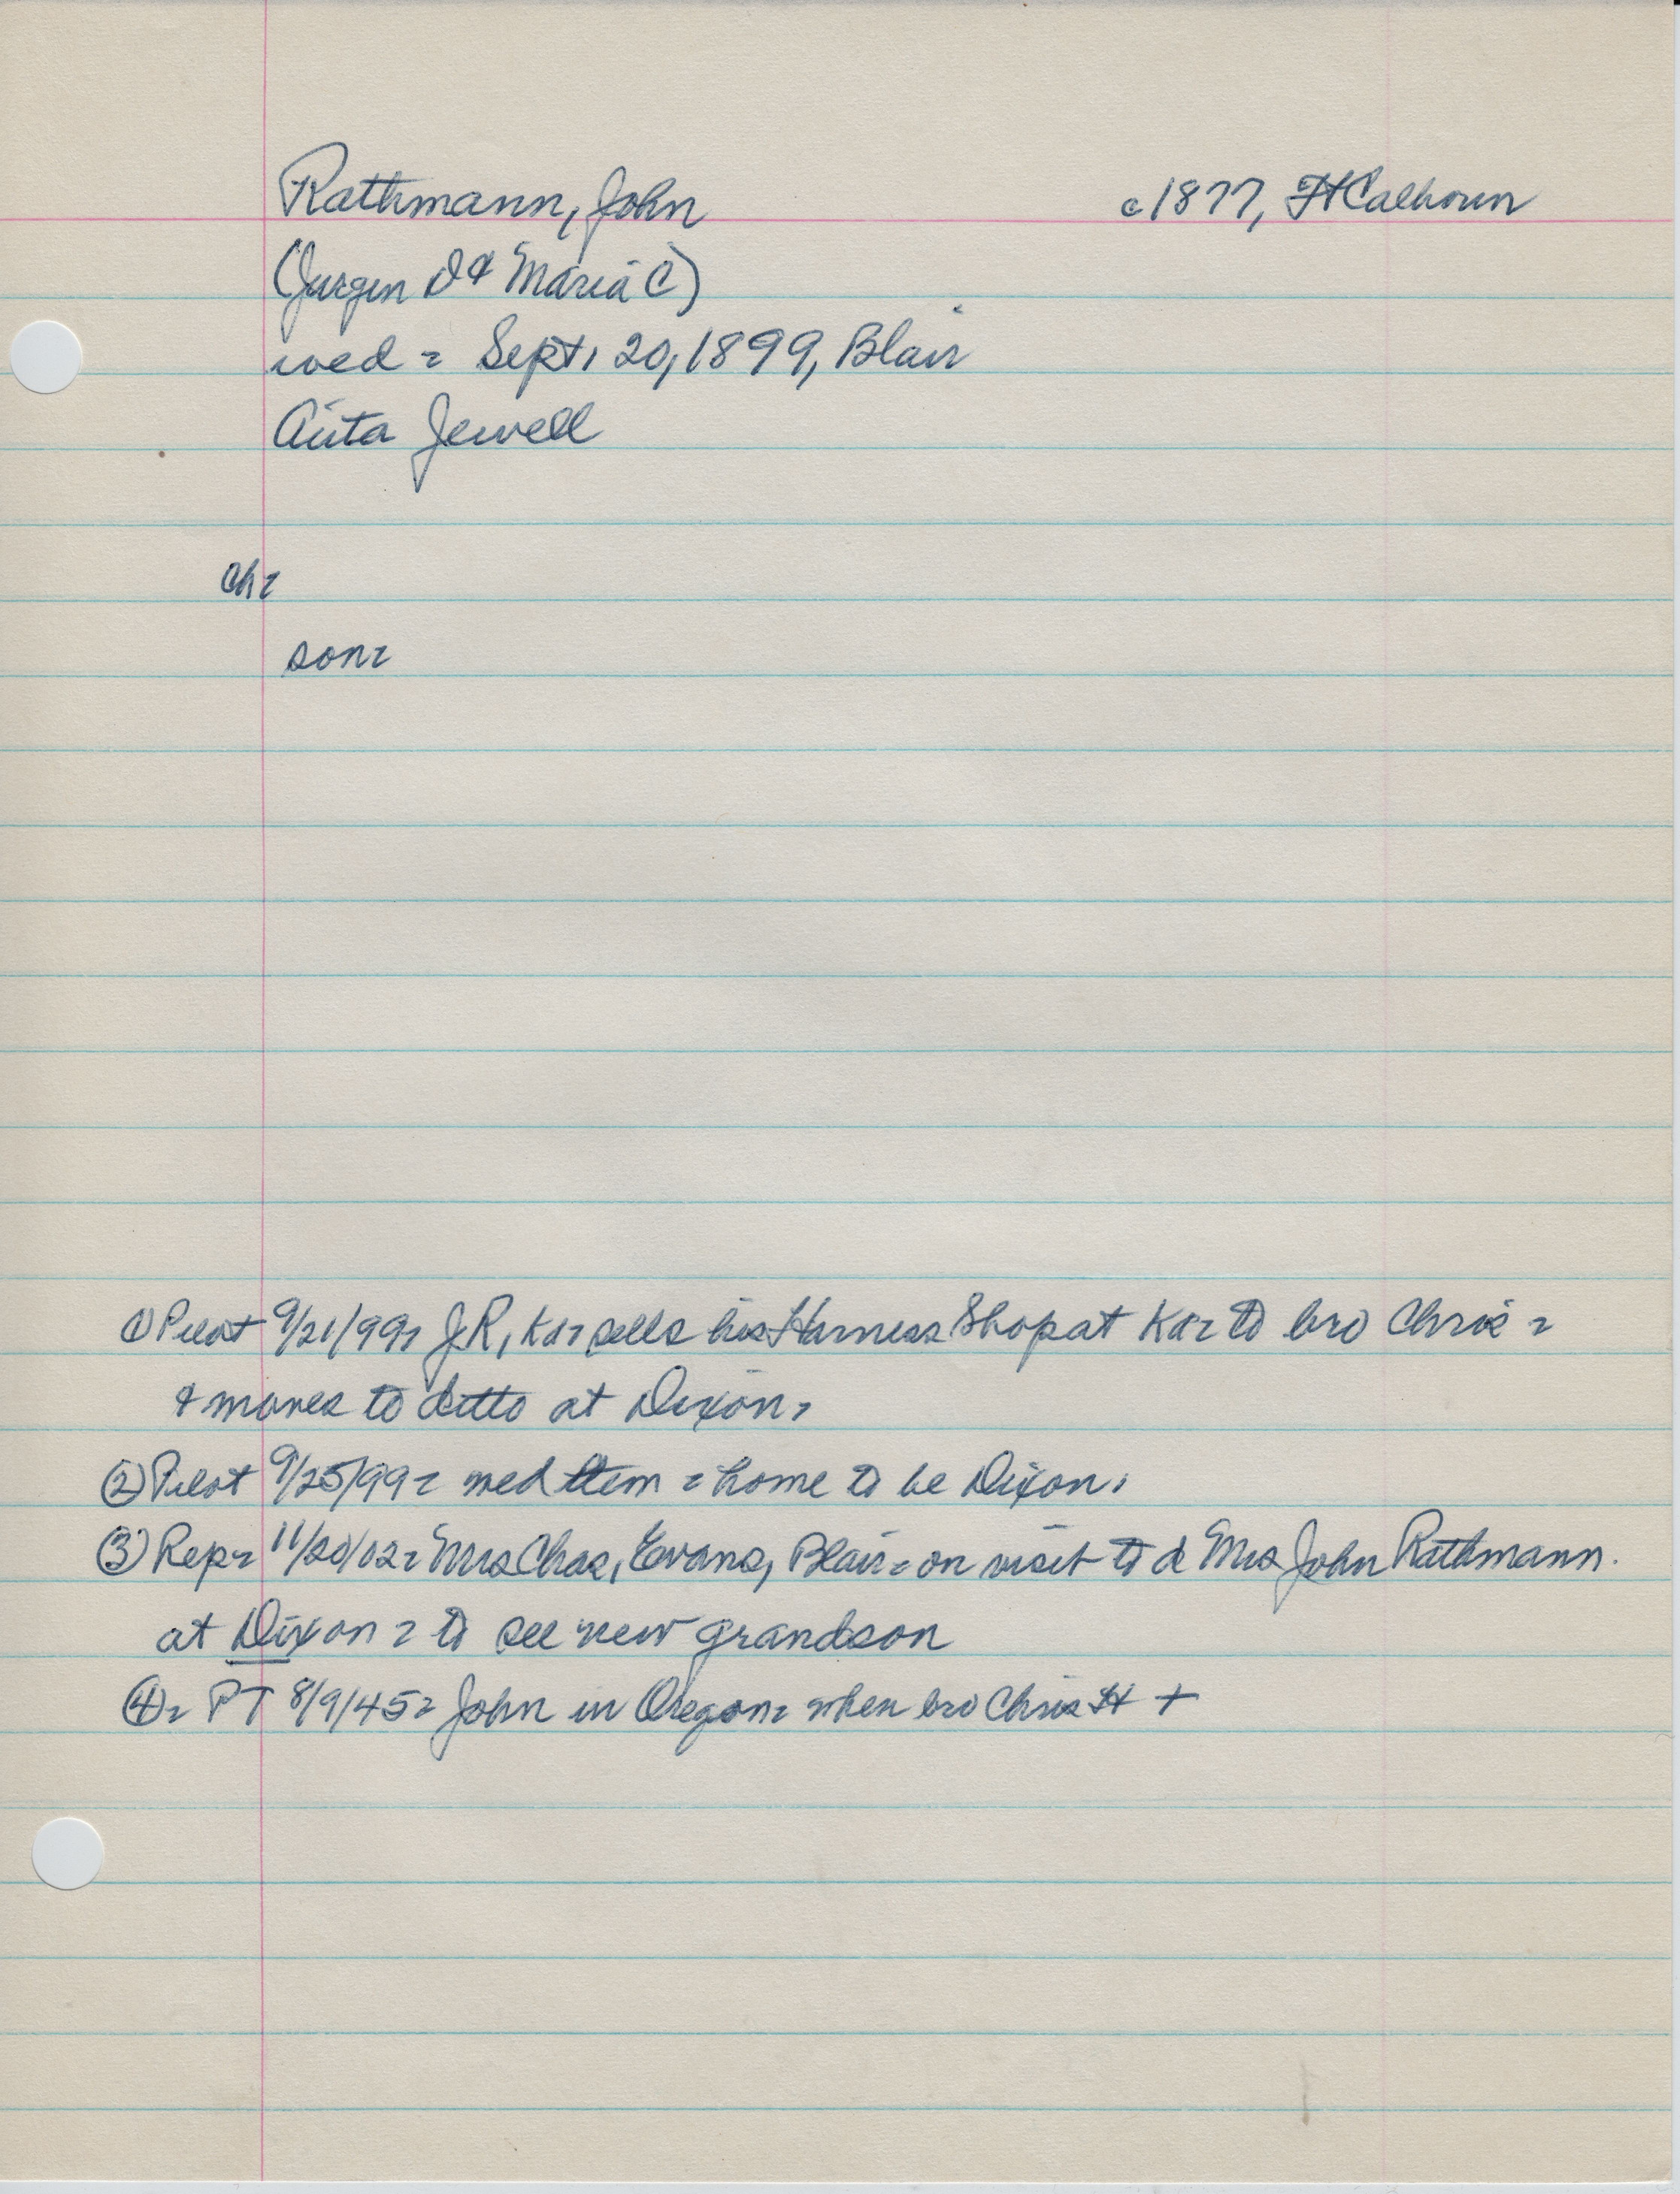 Rathmann, John c1877, Ft Calhoun
(Jurgen D & Maria C)
wed = Sept, 20, 1899, Blair
Anta Jewell
Ch =
son =
① Pilot 9/21/99, J.R, Ka = sells his Harness Shop at Ka = to bro Chris =
& moves to ditto at Dixon,
② Pilot 9/25/99 = wed item = home to be Dixon,
③ Rep = 11/20/02 = Mrs Chas, Evans, Blair = on visit to d Mrs John Rathmann.
at Dixon = to see new grandson
④ = PT 8/9/45 = John in Oregon = when bro Chris H +